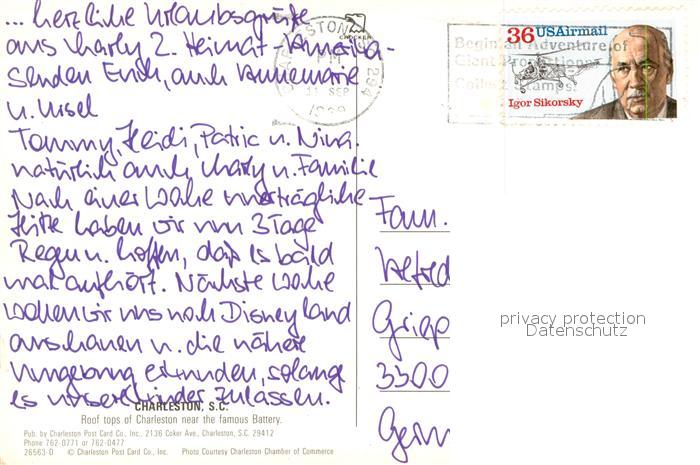 ... herzliche Urlaubsgrüße
aus Charly 2. Heimat - Amerika -
senden Euch, auch Annemarie
u. Ursel
Tommy, Heidi, Patric u. Nina.
natürlich auch Charly u. Familie
Nach einer Woche unerträgliche
Hitze haben wir nun 3 Tage
Regen u. hoffen, daß es bald
mal aufhört. Nächste Woche
wollen wir uns noch Disneyland
anschauen u. die nähere
Umgebung erkunden, solange
es unsere Kinder zulassen.
CHARLESTON, S.C.
Roof tops of Charleston near the famous Battery.
Pub. by Charleston Post Card Co., Inc., 2136 Coker Ave., Charleston, S.C. 29412
Phone 762-0771 or 762-0477
26563-D © Charleston Post Card Co., Inc. Photo Courtesy Charleston Chamber of Commerce
CHARLESTON
PM
11 SEP
1989
294
Begin an Adventure of
Collect Stamps!
36 USAirmail
Igor Sikorsky
Fam.
Griep
3300
Germ
privacy protection
Datenschutz